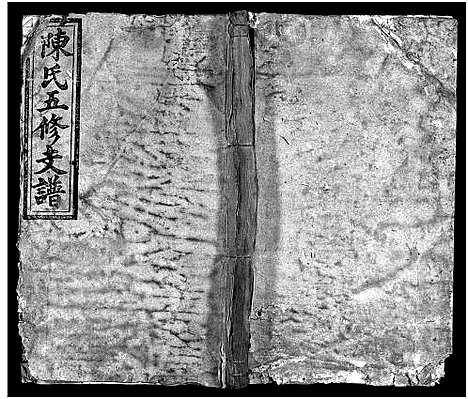 陳氏五修支譜